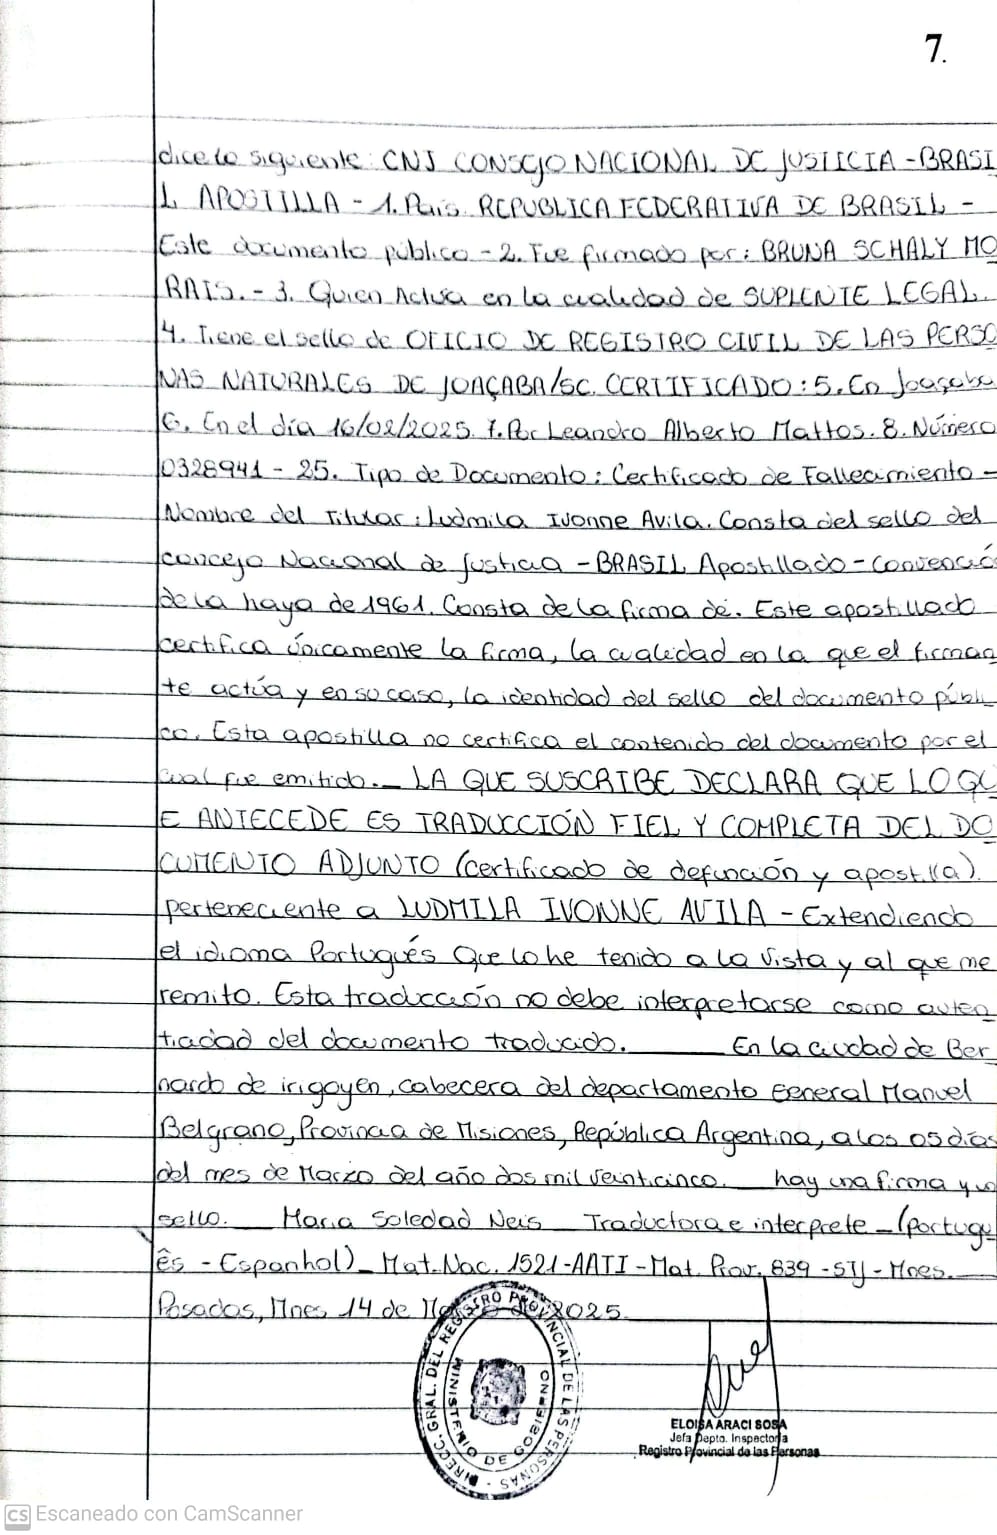 7.
dice lo siguiente: CNJ CONSEJO NACIONAL DE JUSTICIA - BRASI
L APOSTILLA - 1. País. REPUBLICA FEDERATIVA DE BRASIL -
Este documento público - 2. Fue firmado por: BRUNA SCHALY MO
RAIS. - 3. Quien Actúa en la cualidad de SUPLENTE LEGAL.
4. Tiene el sello de OFICIO DE REGISTRO CIVIL DE LAS PERSO
NAS NATURALES DE JOAÇABA/SC. CERTIFICADO: 5. En Joaçaba
6. En el día 16/02/2025. 7. Por Leandro Alberto Mattos. 8. Número
0328941 - 25. Tipo de Documento: Certificado de Fallecimiento -
Nombre del Titular: Ludmila Ivonne Avila. Consta del sello del
concejo Nacional de Justicia - BRASIL Apostillado - Convenció
de la haya de 1961. Consta de la firma de. Este apostillado
certifica únicamente la firma, la cualidad en la que el firman
te actúa y en su caso, la identidad del sello del documento públi
co. Esta apostilla no certifica el contenido del documento por el
cual fue emitido. _ LA QUE SUSCRIBE DECLARA QUE LO QU
E ANTECEDE ES TRADUCCIÓN FIEL Y COMPLETA DEL DO
CUMENTO ADJUNTO (certificado de defunción y apostilla).
perteneciente a LUDMILA IVONNE AVILA - Extendiendo
el idioma Portugués Que lo he tenido a la vista y al que me
remito. Esta traducción no debe interpretarse como auten
ticidad del documento traducido. ____ En la ciudad de Ber
nardo de irigoyen, cabecera del departamento General Manuel
Belgrano, Provincia de Misiones, República Argentina, a los 05 días
del mes de Marzo del año dos mil veinticinco. __ hay una firma y un
sello. __ Maria Soledad Neis __ Traductora e interprete _ (portugu
ês - Espanhol) _ Mat. Nac. 1521 - AATI - Mat. Prov. 839 - STJ - Mnes. __
Posadas, Mnes 14 de 2025.
DIRECC. GRAL. DEL REGISTRO PROVINCIAL DE LAS PERSONAS -
MINISTERIO DE GOBIERNO
ELOISA ARACI SOSA
Jefa Depto. Inspectoría
Registro Provincial de las Personas
CS Escaneado con CamScanner